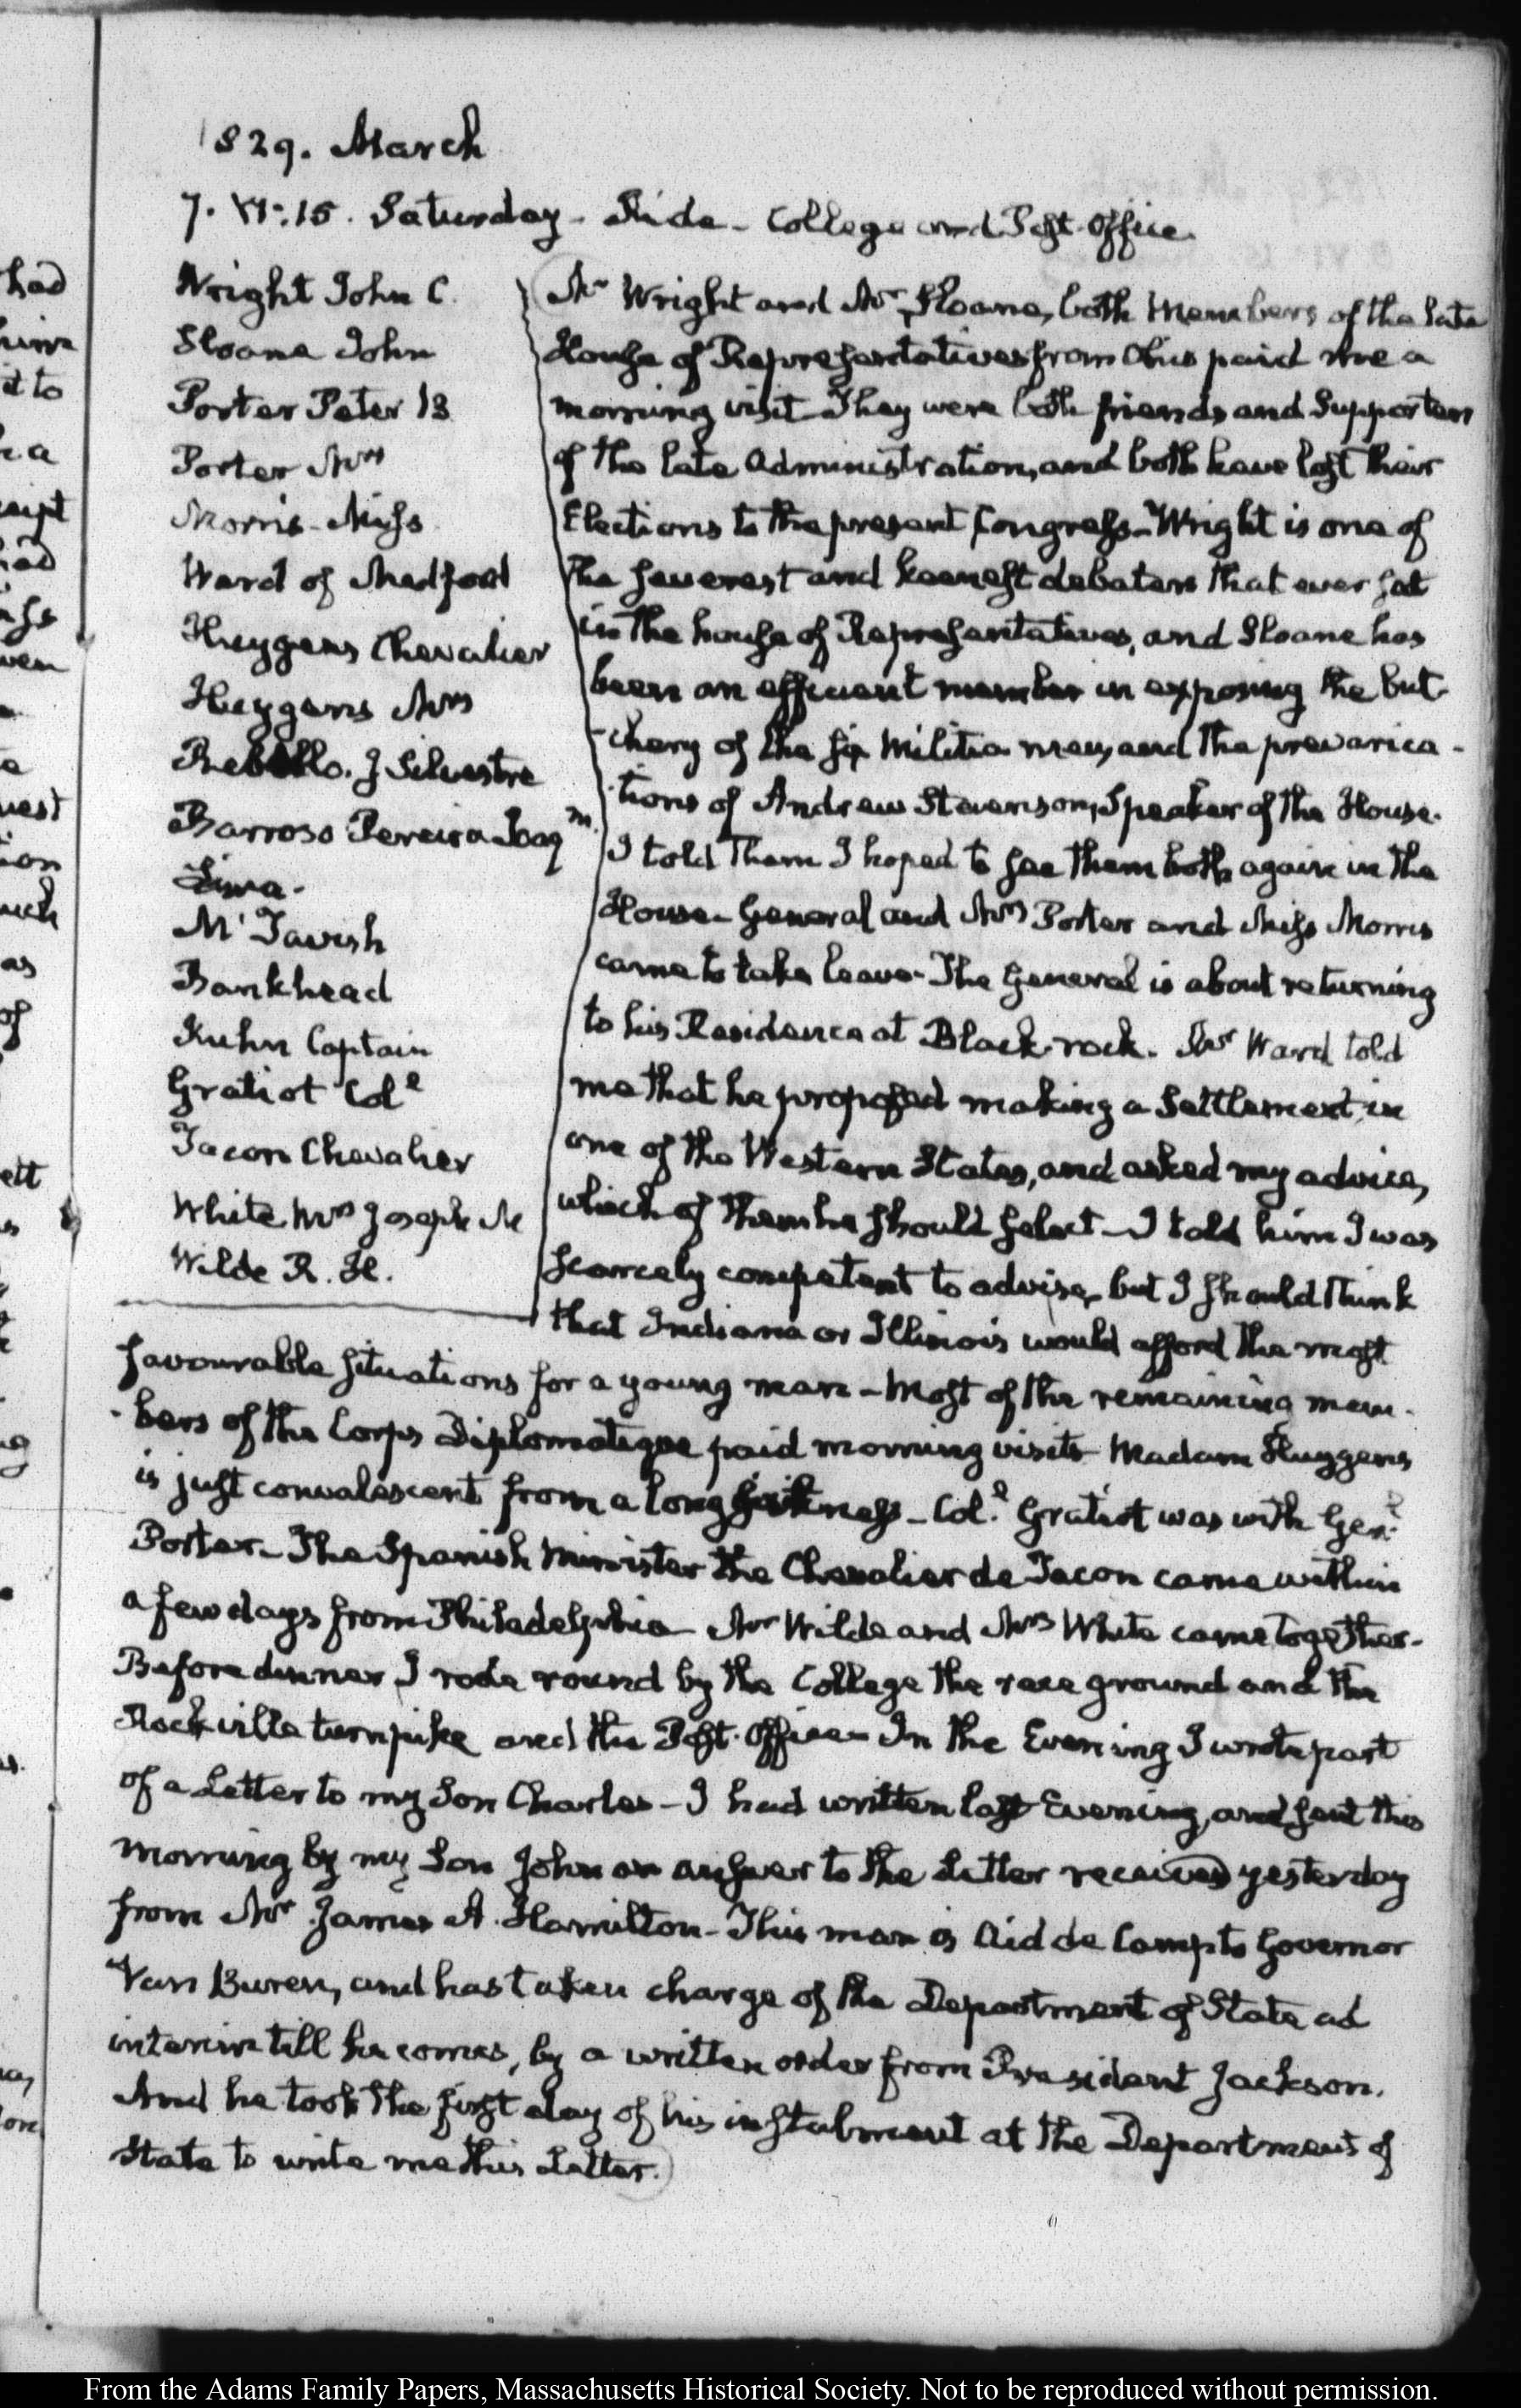 1829. March
7. VI:15. Saturday - Ride - College and Post-Office.
Wright John C.
Sloane John
Porter Peter B
Porter Mrs
Morris - Miss
Ward of Medford
Huygens Chevalier
Huygens Mrs
Rebello. J Silvestre
Barroso Pereira Joaqm.
Lima -
McTavish
Bankhead
Kuhn Captain
Gratiot Coll
Tacon Chevalier
White Mrs Joseph M
Wilde R. H.
Mr Wright and Mr Sloane, both Members of the late
House of Representatives from Ohio paid me a
morning visit They were both friends and Supporters
of the late Administration, and both have lost their
Elections to the present Congress - Wright is one of
the severest and keenest debaters that ever sat
in the house of Representatives, and Sloane has
been an efficient member in exposing the but-
-chery of the six Militia men, and the prevarica-
-tions of Andrew Stevenson, Speaker of the House.
I told them I hoped to see them both again in the
House - General and Mrs Porter and Miss Morris
came to take leave - The General is about returning
to his Residence at Black-rock. Mr Ward told
me that he proposed making a Settlement in
one of the Western States, and asked my advice,
which of them he should select - I told him I was
scarcely competent to advise, but I should think
that Indiana or Illinois would afford the most
favourable situations for a young man - Most of the remaining mem-
-bers of the Corps Diplomatique paid morning visits - Madam Huygens
is just convalescent from a long sickness - Coll. Gratiot was with Genl.
Porter - The Spanish Minister the Chevalier de Tacon came within
a few days from Philadelphia - Mr Wilde and Mrs White came together -
Before dinner I rode round by the College the race ground and the
Rockville turnpike and the Post-Office - In the Evening I wrote part
of a Letter to my Son Charles - I had written last Evening, and sent this
morning by my Son John an answer to the Letter received yesterday
from Mr James A. Hamilton - This man is Aid de Camp to Governor
Van Buren, and has taken charge of the Department of State ad
interim till he comes, by a written order from President Jackson.
And he took the first day of his instalment at the Department of
State to write me this Letter.
From the Adams Family Papers, Massachusetts Historical Society. Not to be reproduced without permission.